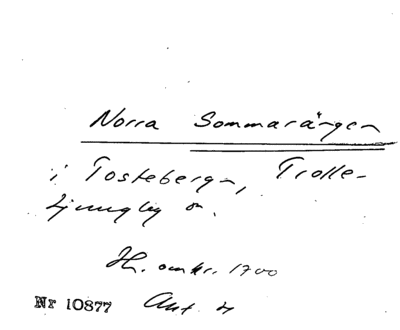 Norra Sommarängen
i Tosteberga, Trolle-
ljungby sn.
H. omkr. 1700
Nr 10877 Ant. 4